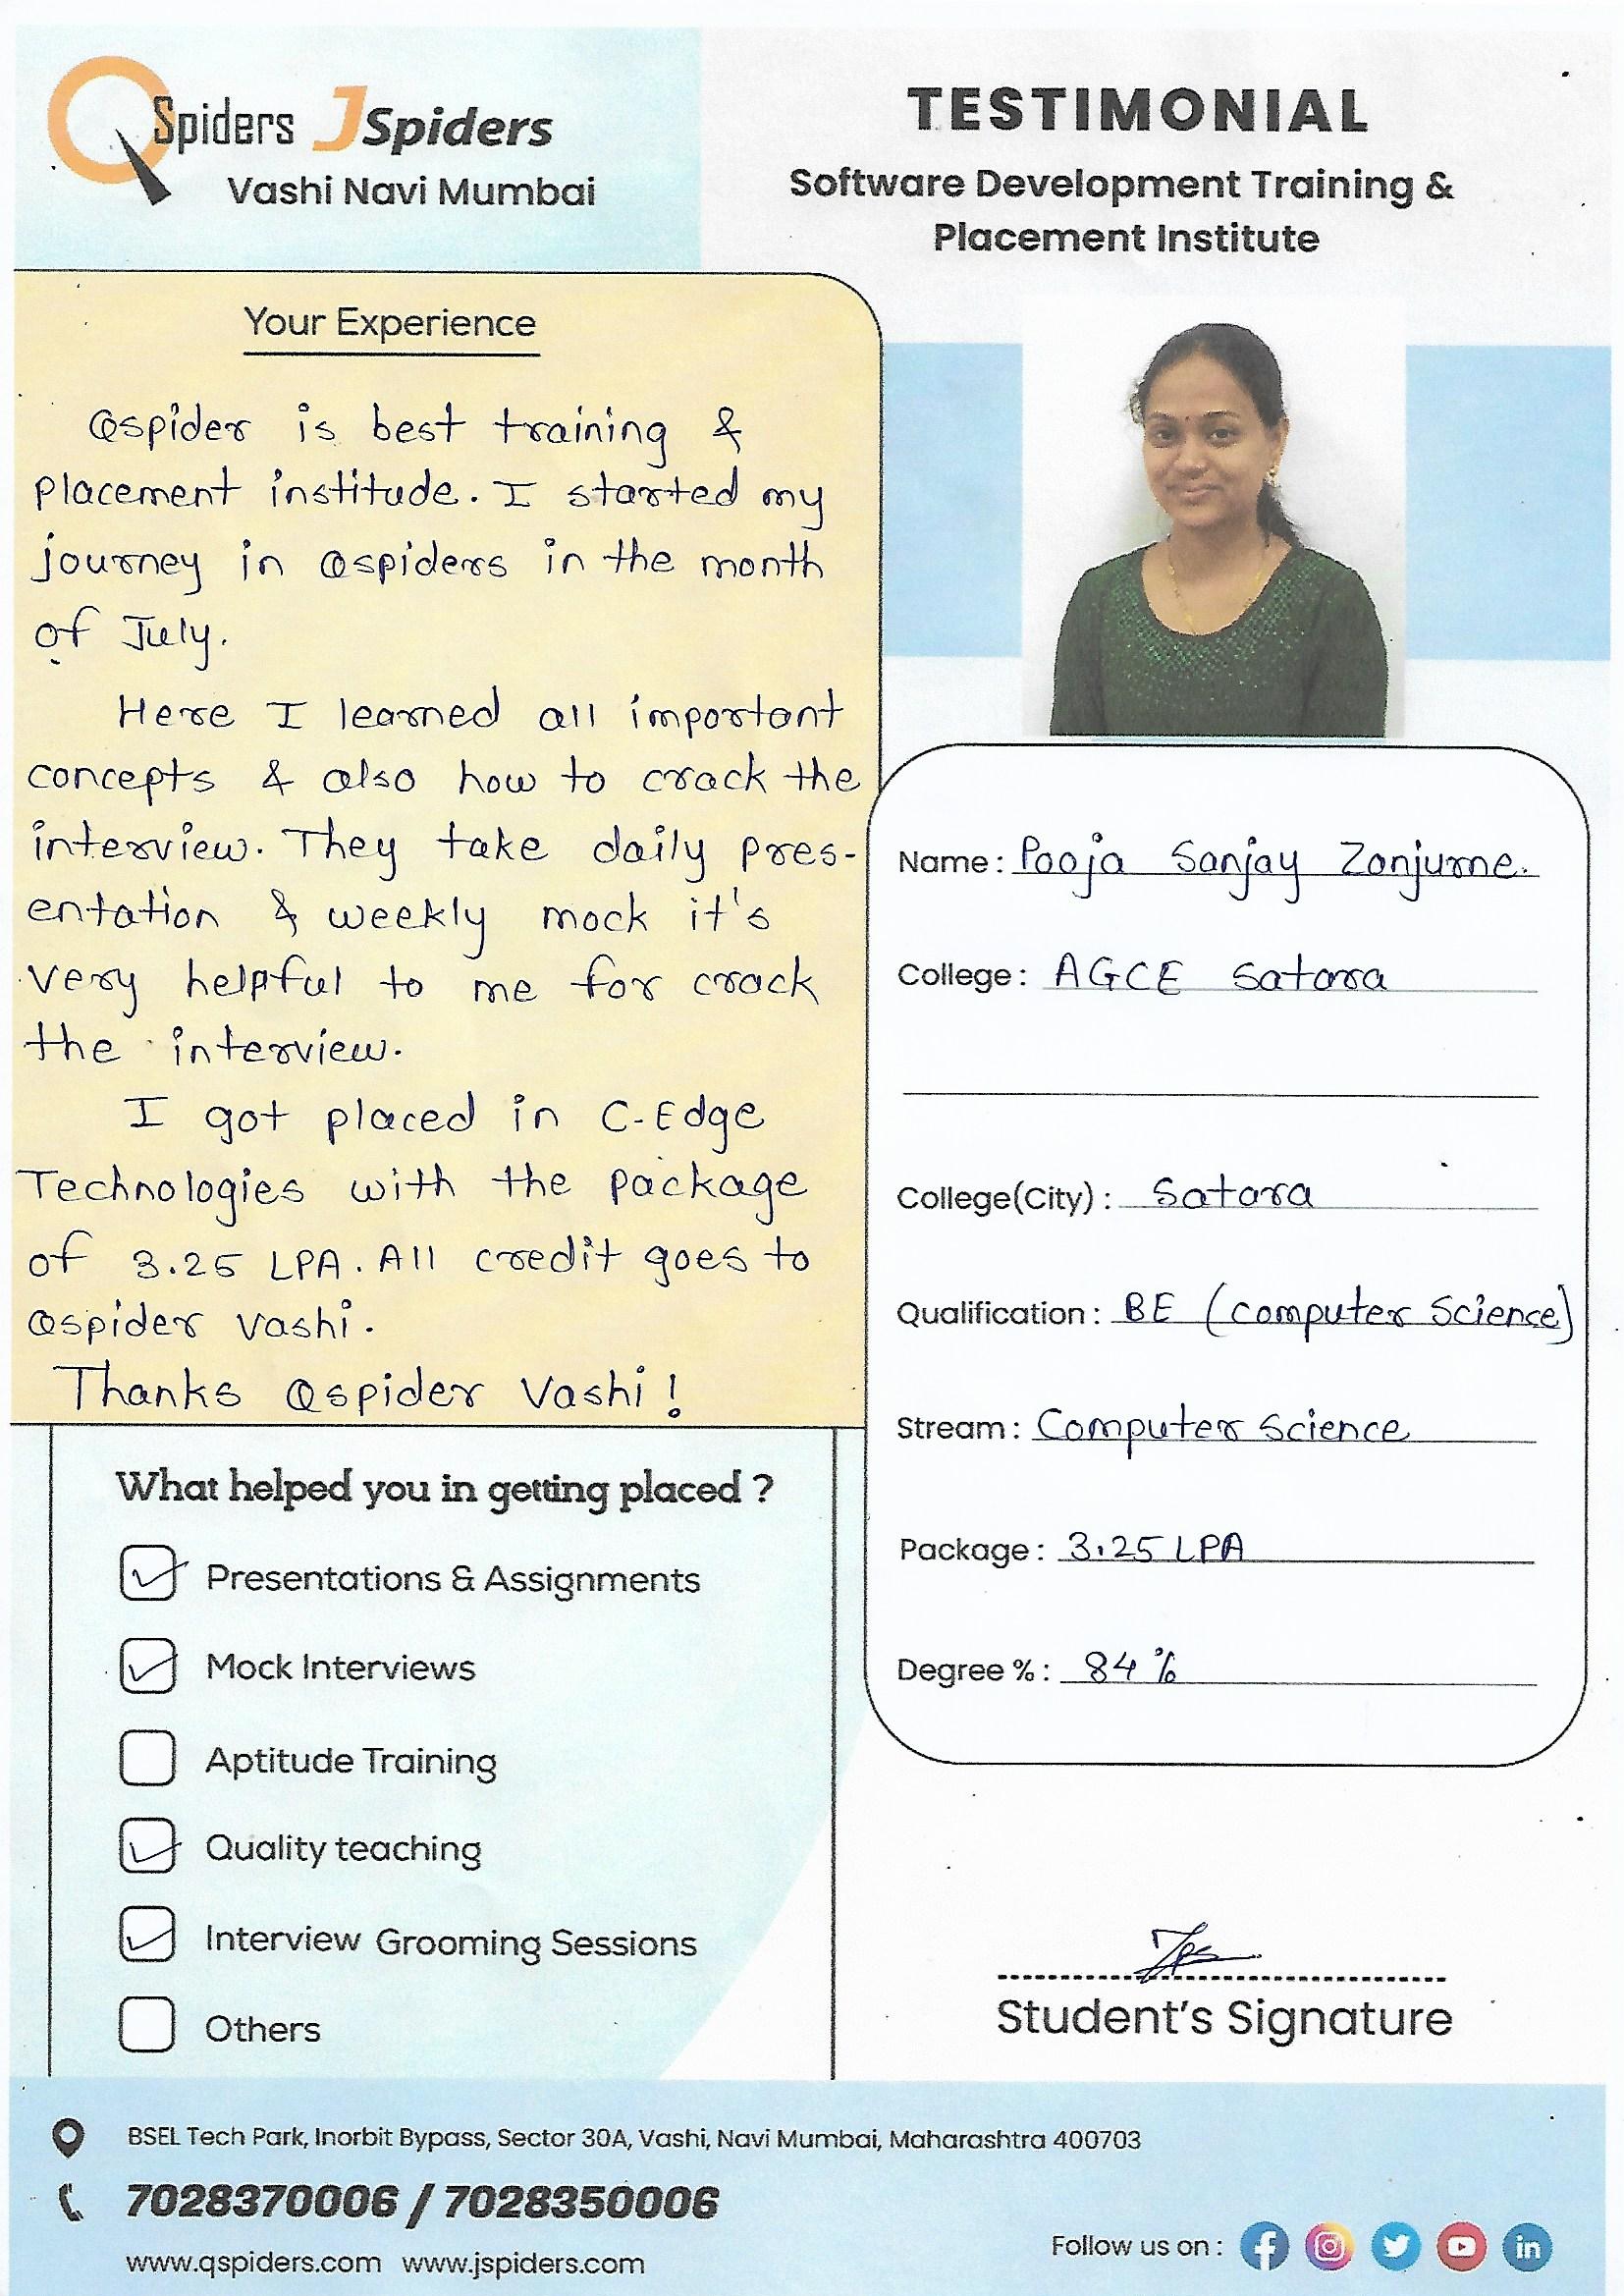 QSpiders JSpiders
Vashi Navi Mumbai
TESTIMONIAL
Software Development Training &
Placement Institute
Your Experience
Qspider is best training &
placement institude. I started my
journey in Qspiders in the month
of July.
Here I learned all important
concepts & also how to crack the
interview. They take daily pres-
entation & weekly mock it's
very helpful to me for crack
the interview.
I got placed in C-Edge
Technologies with the package
of 3.25 LPA. All credit goes to
Qspider Vashi.
Thanks Qspider Vashi!
Name: Pooja Sanjay Zanjurne.
College: AGCE Satara
College(City): Satara
Qualification: BE (Computer Science)
Stream: Computer Science
Package: 3.25 LPA
Degree %: 84 %
What helped you in getting placed ?
Presentations & Assignments
Mock Interviews
Aptitude Training
Quality teaching
Interview Grooming Sessions
Others
Student's Signature
BSEL Tech Park, Inorbit Bypass, Sector 30A, Vashi, Navi Mumbai, Maharashtra 400703
7028370006 / 7028350006
www.qspiders.com www.jspiders.com
Follow us on :